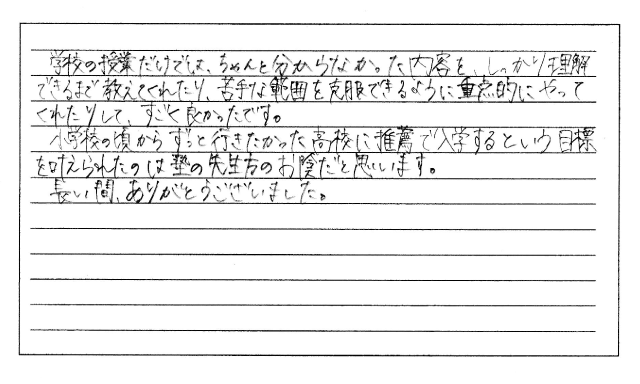 学校の授業だけでは、ちゃんと分からなかった内容を、しっかり理解
できるまで教えてくれたり、苦手な範囲を克服できるように重点的にやって
くれたりして、すごく良かったです。
小学校の頃からずっと行きたかった高校に推薦で入学するという目標
を叶えられたのは塾の先生方のお陰だと思います。
長い間、ありがとうございました。